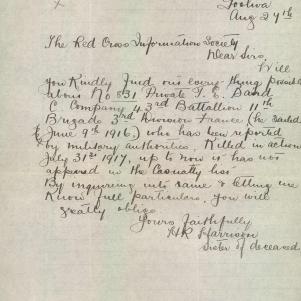 Footwa
Aug 27th
The Red Cross Information Society
Dear Sirs,
Will
you Kindly find out every thing possible
about No 831 Private J. E. Dand
C Company 43rd Battalion 11th
Brigade 3rd Division France (he sailed
June 9th 1916) who has been reported
by military authorities, Killed in action
July 31st 1917, up to now it has not
appeared in the casualty list
By inquiring into same & letting me
Know full particulars, you will
greatly oblige
Yours faithfully
H R Harrison
Sister of deceased